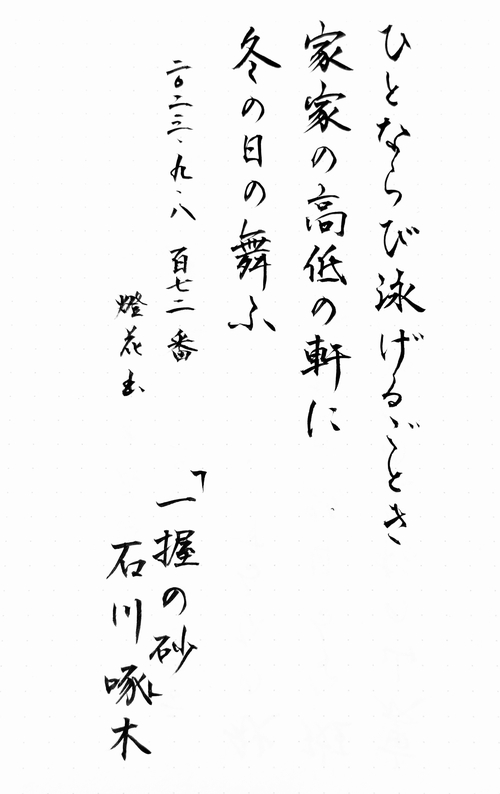 ひとならび泳げるごとき
家家の高低の軒に
冬の日の舞ふ
二〇二三、九、八 百七二番
燈花
「一握の砂」
石川啄木